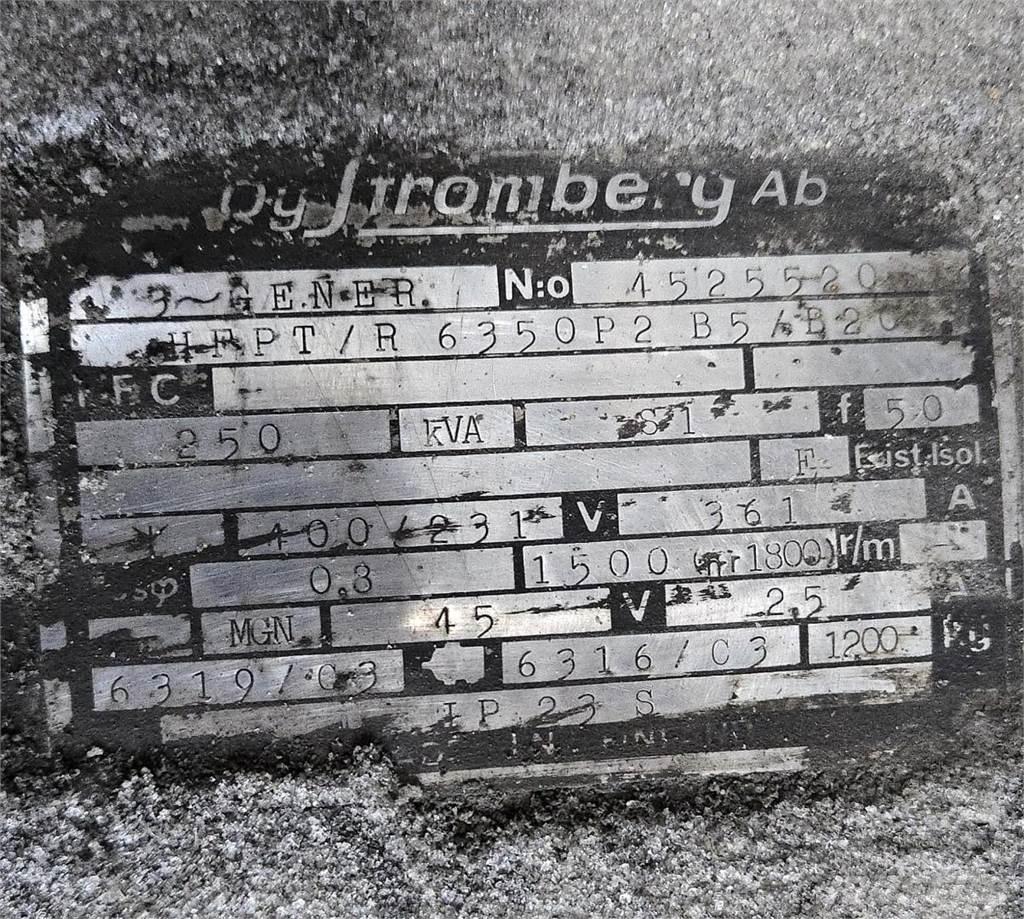 Oy Strömberg Ab
3~GENER. N:o 4525520
HFPT/R 6350P2 B5/B20
250 kVA S1 f 50
F Eust.Isol.
400/231 V 361 A
0,8 1500 (nr1800) r/m
MGN 45 V 2,5 A
6319/C3 6316/C3 1200 kg
IP 23 S